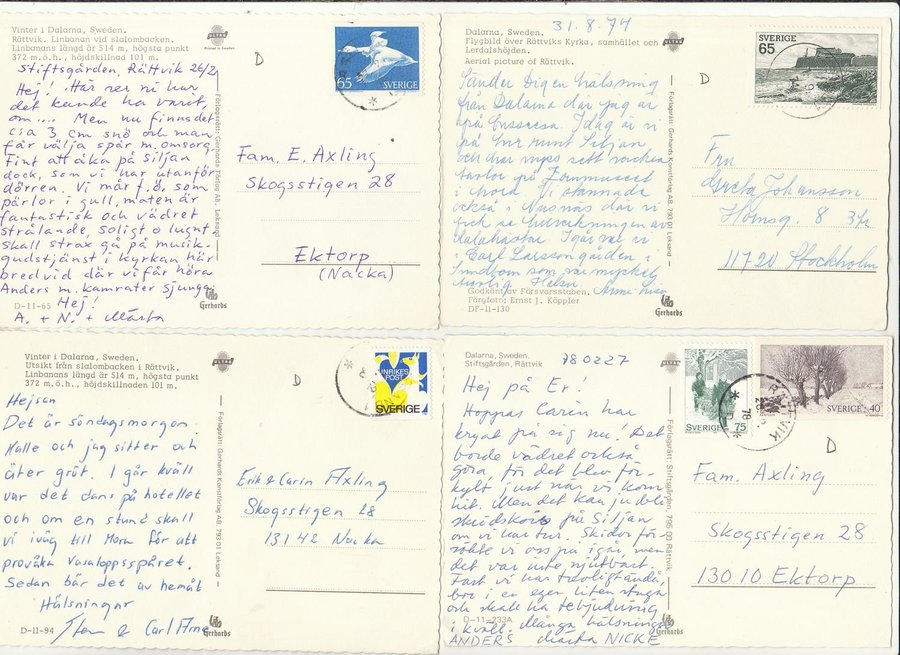 Vinter i Dalarna, Sweden.
Rättvik. Linbanan vid slalombacken.
Linbanans längd är 514 m, högsta punkt
372 m.ö.h., höjdskillnad 101 m.
ULTRA
Printed in Sweden
D
65 SVERIGE
Stiftsgården, Rättvik 26/2
Hej! Här ser ni hur
det kunde ha varit,
om.... Men nu finns det
c:a 3 cm snö och man
får välja spår m. omsorg.
Fint att åka på Siljan
dock, som vi har utanför
dörren. Vi mår f.ö. som
pärlor i gull, maten är
fantastisk och vädret
strålande, soligt o lugnt.
skall strax gå på musik-
gudstjänst i kyrkan här
bredvid där vi får höra
Anders m. kamrater sjunga.
Hej!
A. + N. + Märta
D-11-65
Förlagsrätt: Gerhards Förlag AB. Leksand
Gerhards
Fam. E. Axling
Skogsstigen 28
Ektorp
(Nacka)
31.8.74
Dalarna, Sweden.
Flygbild över Rättviks Kyrka, samhället och
Lerdalshöjden.
Aerial picture of Rättvik.
ULTRA
D
SVERIGE
65
Sänder Dig en hälsning
från Dalarna där jag är
på Idag är vi
på tur runt Siljan
och har nyss sett vackra
tavlor på Zornmuseet
i Mora. Vi stannade
också i Nusnäs där vi
fick se tillverkningen av
dalahästar. Igår var vi
i Carl Larssongården i
Sundborn som var mycket
Hälsn. Anne-
Godkänt av Försvarsstaben.
Färgfoto: Ernst J. Köppler
DF-11-130
Förlagsrätt: Gerhards Konstförlag AB. 793 01 Leksand
Gerhards
Fru
Greta Johansson
Hornsg. 8 3tr
117 20 Stockholm
Vinter i Dalarna, Sweden.
Utsikt från slalombacken i Rättvik.
Linbanans längd är 514 m, högsta punkt
372 m.ö.h., höjdskillnaden 101 m.
ULTRA
D
INRIKES
POST
SVERIGE
Hejsan
Det är söndagsmorgon.
Kalle och jag sitter och
äter gröt. I går kväll
var det dans på hotellet
och om en stund skall
vi iväg till Mora för att
provåka Vasaloppsspåret.
Sedan bär det av hemåt
Hälsningar
Sten & Carl Arne
D-11-94
Förlagsrätt: Gerhards Konstförlag AB, 793 01 Leksand
Gerhards
Erik & Carin Axling
Skogsstigen 28
131 42 Nacka
Dalarna, Sweden.
Stiftsgården, Rättvik
780227
ULTRA
SVERIGE 75
SVERIGE 40
RÄTTVIK
78
D
Hej på Er!
Hoppas Carin har
kryat på sig nu! Det
borde vädret också
göra, för det blev för-
kylt just när vi kom
hit. Men det kan ju bli
skridskois på Siljan
om vi har tur. Skidor för-
sökte vi oss på igår, men
det var inte njutbart.
Fast vi har trevligt ändå,
bor i en egen liten stuga
och skall ha tebjudning
i kväll. Många hälsningar
ANDERS Märta NICKE
D-11-233A
Förlagsrätt: Stiftsgården, 795 00 Rättvik
Gerhards
Fam. Axling
Skogsstigen 28
130 10 Ektorp